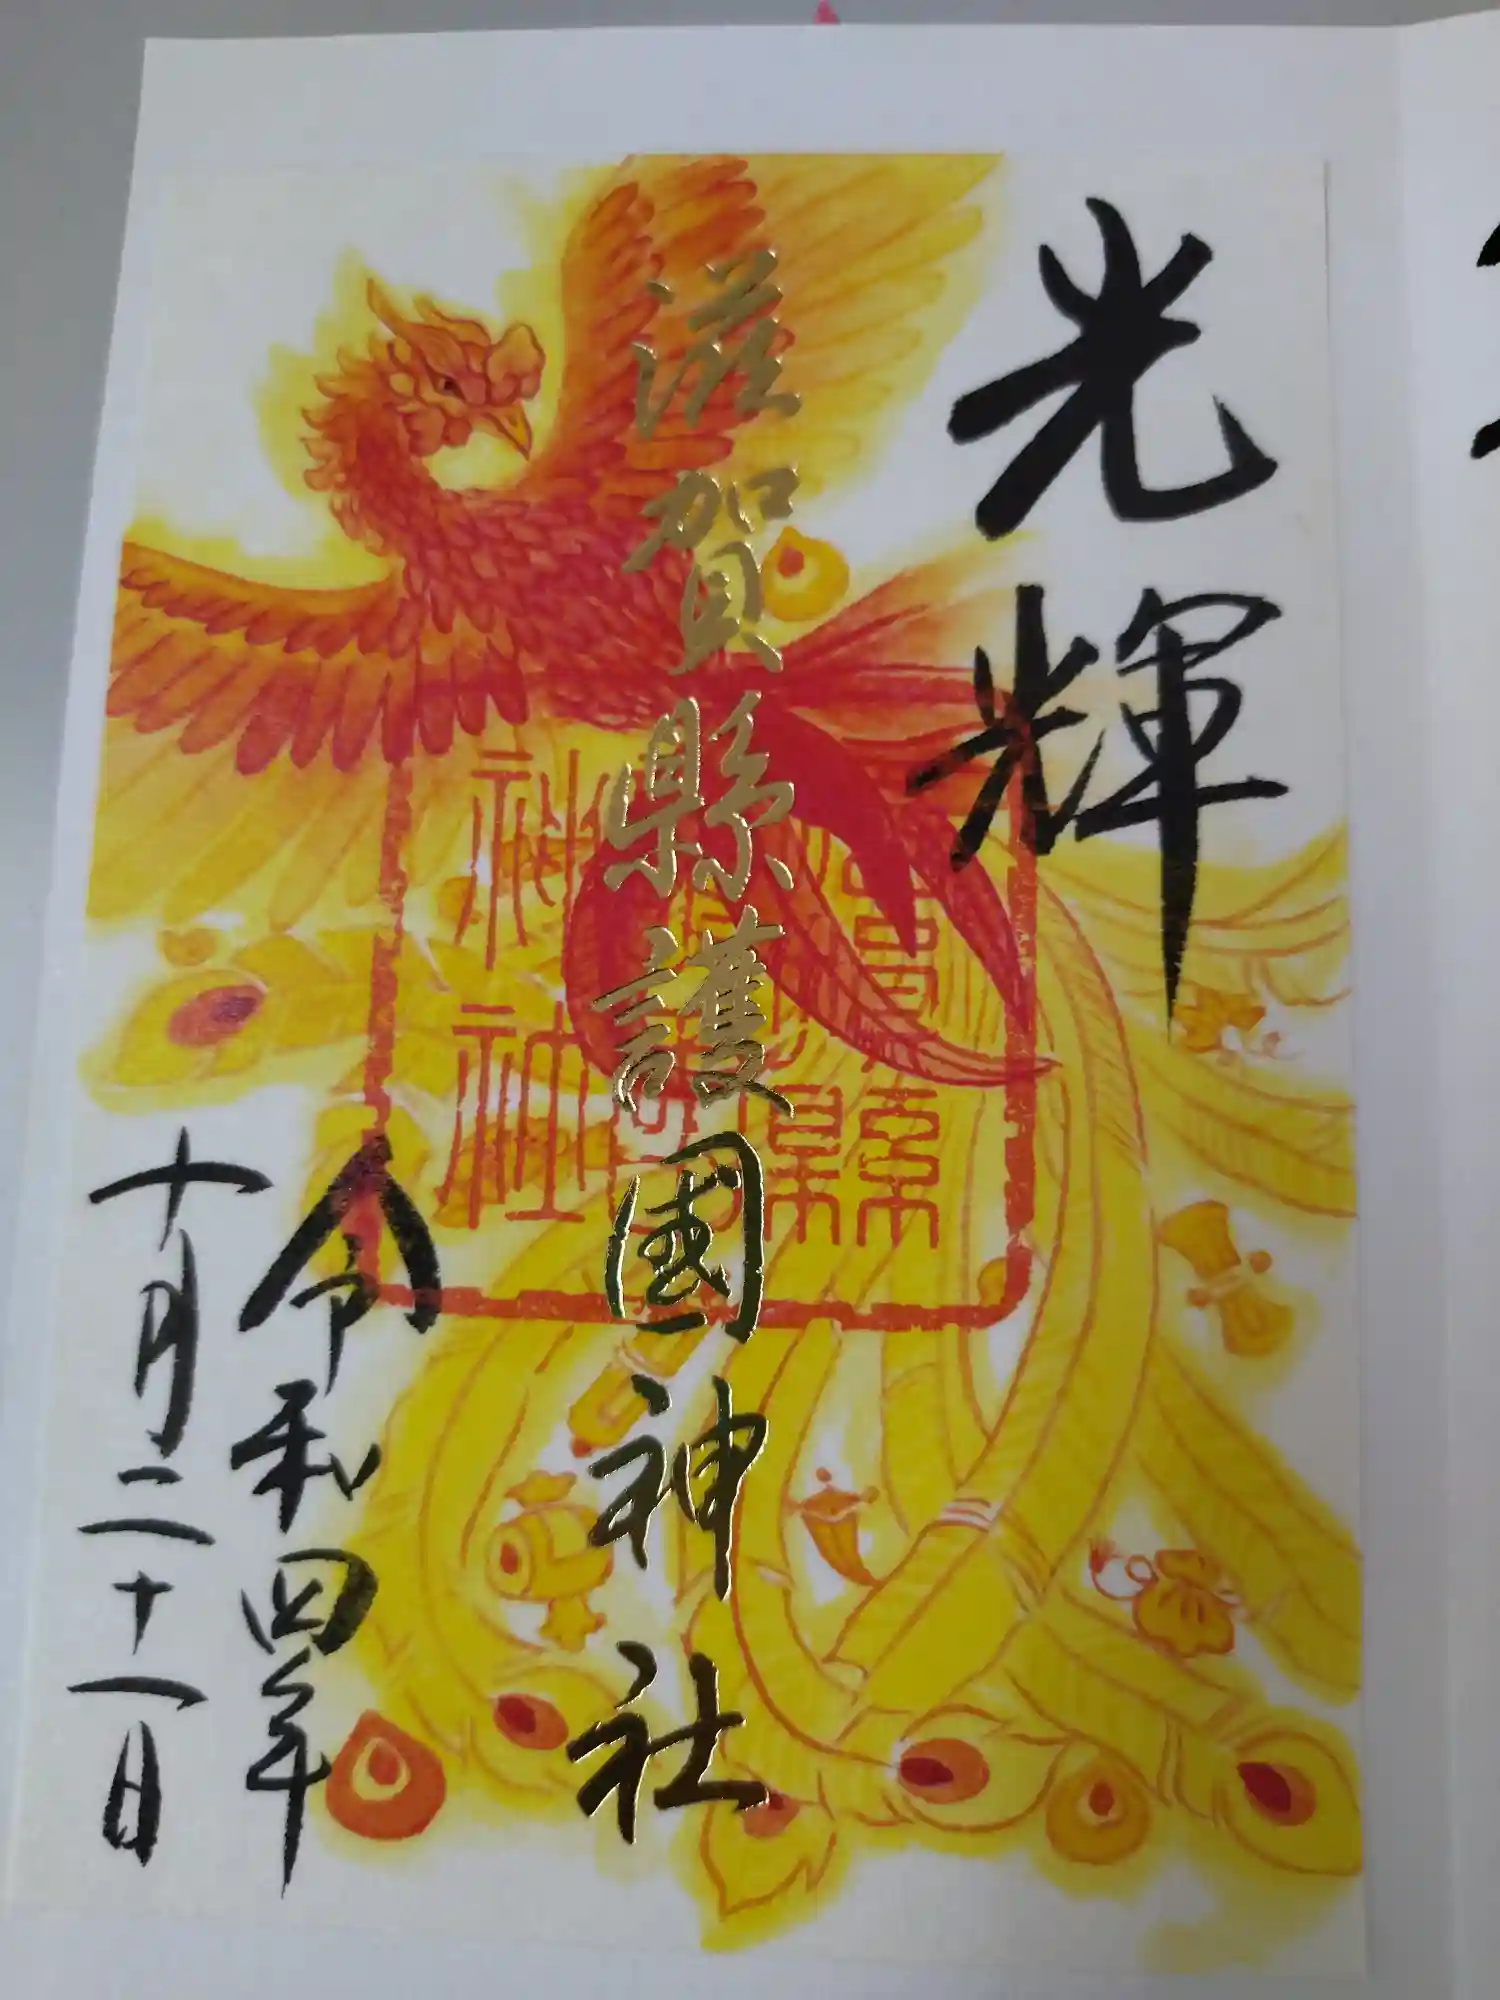 光輝
滋賀縣護國神社
滋賀縣護國神社
令和四年
十月二十一日